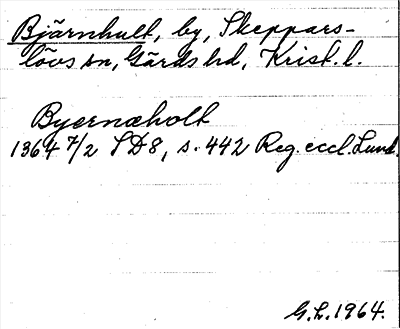 Bjärnhult, by, Skeppars-
lövs sn, Gärds hd, Krist. l.
Byernæholt
1364 7/2 SD8, s. 442 Reg. eccl. Lund.
G.L. 1964.